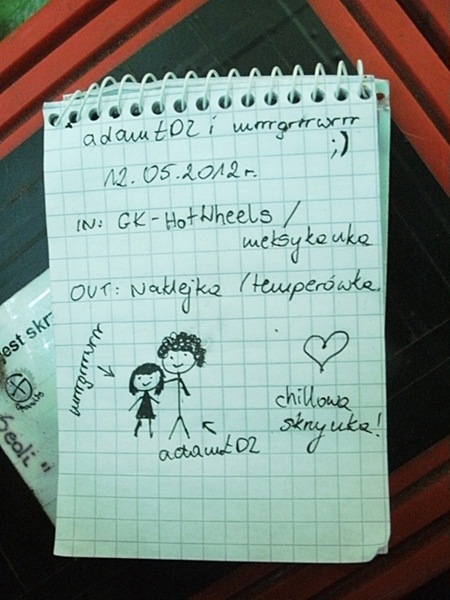 adamtDZ i wrrrgrrrwrrr
;)
12.05.2012r.
IN: GK-HotWheels /
meksykanka
OUT: Naklejka /temperówka.
wrrrgrrrwrrr
adamtDZ
chillowa
skrzynka!
jest skr
Geoli"